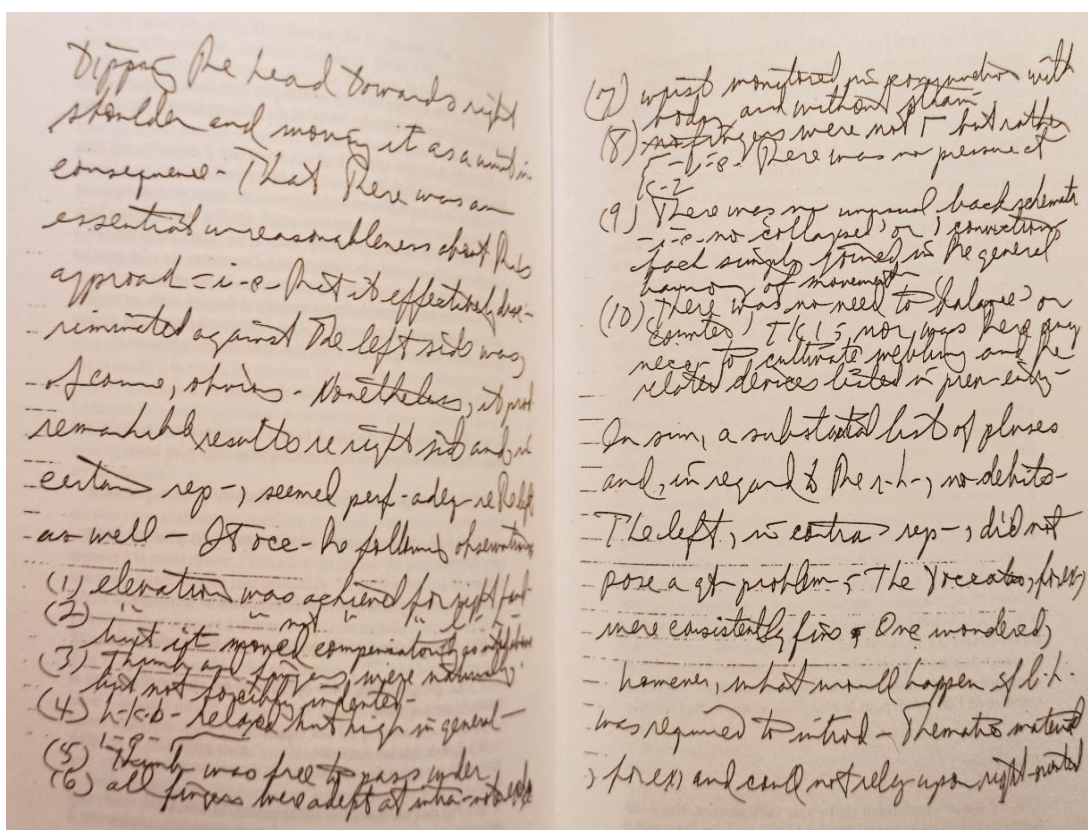 Dipping the head towards right
shoulder and moving it as a unit in
consequence - That there was an
essential unreasonableness about this
approach - i-e- that it effectively disc-
riminated against the left side was,
of course, obvious - Nonetheless, it prod
remarkable results re right side and, in
certain rep-, seemed perf-adeq-re the left
as well - the following observations
(1) elevation was achieved for right
(2) " " not " "
but it moved compensatorily as
(3) Thumb and fingers were naturally
but not forcibly indented-
(4) h-k-b- relaxed but high in general-
i-e-
(5) Thumb was free to pass under
(6) all fingers were adept at intra-note
(7) wrist monitored in conjunction with
body and without strain
(8) fingers were not Γ but rather
- i-e- There was no pressure at
k-2
(9) There was no unusual back schemata
- i-e- no 'collapsed' or convictions
back simply joined in the general
harmony of movement
(10) There was no need to 'balance' or
'counter' T.K.I.; nor was there any
neces- to cultivate and the
related devices listed in prev-entry-
In sum, a substantial list of pluses
and, in regard to the r-h-, no debits-
The left, in contra rep-, did not
pose a gt-problem; The Toccatas, for ex,
were consistently fine; One wondered,
however, what would happen if l-h-
was required to introd- Thematic material
, for ex, and could not rely upon right-oriented